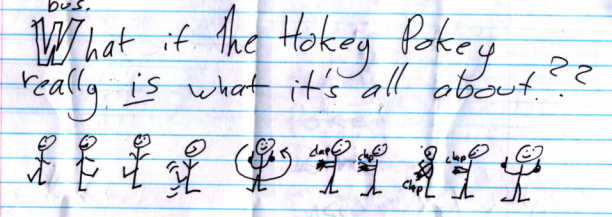 bus.
What if the Hokey Pokey
really is what it's all about??
clap clap clap clap